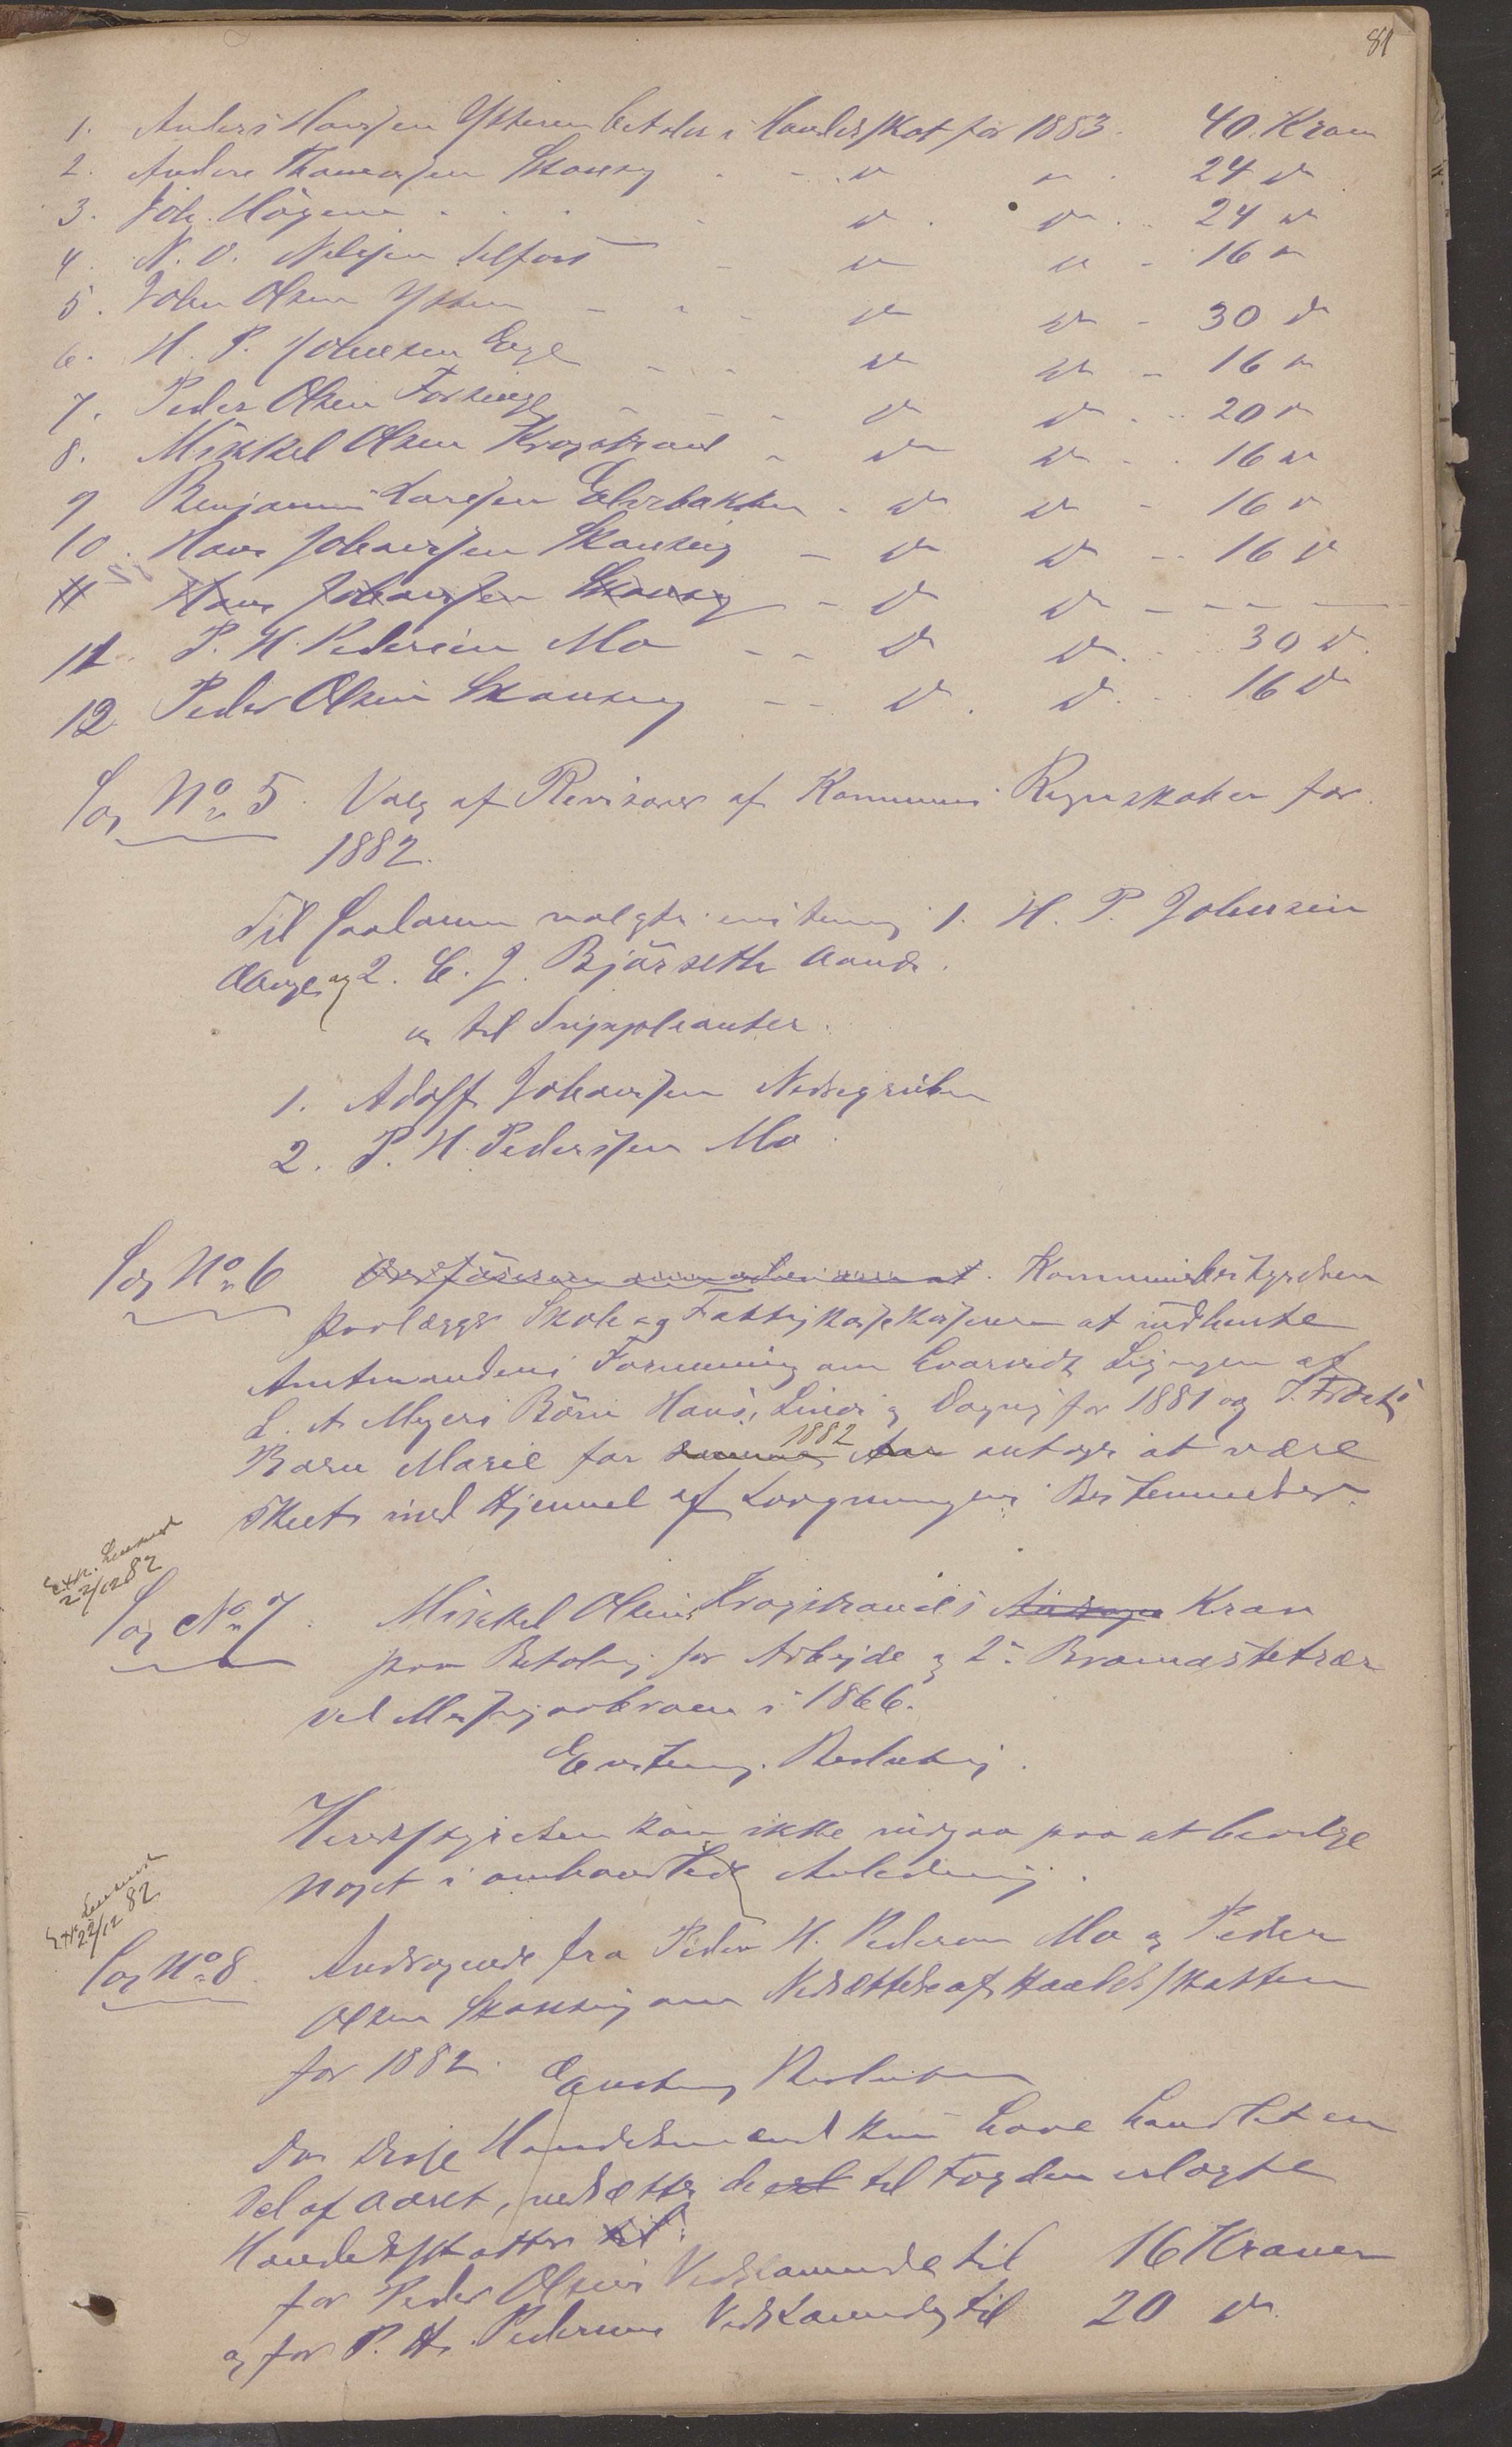 81
1. Anders Hansen Ytteren betaler i Handelsskat for 1883. 40 Kroner
2. Anders Thomassen Skonseng - - do do 24 do
3. Joh. Högenes do do 24 do
4. N. O. Nilssen Selfors - do do - 16 do
5. John Olsen Ytteren - - - do do - 30 do
6. H. P. Johnsen Enge - - - do do - 16 do
7. Peder Olsen Forseng - - - do do - 20 do
8. Mikkel Olsen Krogstrand - do do - 16 do
9 Benjamin Larssen Elvebakken - do do - 16 do
10. Hans Johanssen Skonseng - do do - 16 do
11 Hans Johanssen Skonseng - do do - - - -
11. P. H. Pedersen Mo - - do do - 30 do
12 Peder Olsen Skonseng - - do do - 16 do
Sag No 5. Valg af Revisorer af Kommune Regnskaber for
1882.
Til saadanne valgtes enstemmig 1. H. P. Johnsen
Lange og 2. C. J. Björseth
og til Suppleanter.
1. Adolf Johanssen
2. P. H. Pederssen Mo.
Sag No 6 Kommunebestyrelsen
paalægger Skole og Fattigkassekassereren at indhente
Amtmandens Formening om hvorvidt Ligningen af
L. A. Meyers Börn Hans, og Dagny for 1881 og
Barn Marie for 1882 antages at være
skeet med Hjemmel af Lovgivningens Bestemmelser.
Extr. Lensmd
22/12 82
Sag No 7. Mikkel Olsen Krogstrands Andrage Krav
paa Betaling for Arbeide og 2 
ved i 1866.
Enstemmig Beslutning.
Herredsstyrelsen kan ikke indgaa paa at bevilge
noget i omhandlede Anledning.
Extr. Lensmd
22/12 82
Sag No 8. Andragende fra Peder H. Pedersen Mo og Peder
Olsen Skonseng om Nedsættelse af Handelsskatten
for 1882. Enstemmig Beslutning
Da disse Handelsmænd kun have handlet en
Del af Aaret, nedsættes de til Fogden erlagte
Handelsskatter til:
for Peder Olsens Vedkommende til 16 Kroner
og for P. H. Pedersens Vedkommende til 20 do